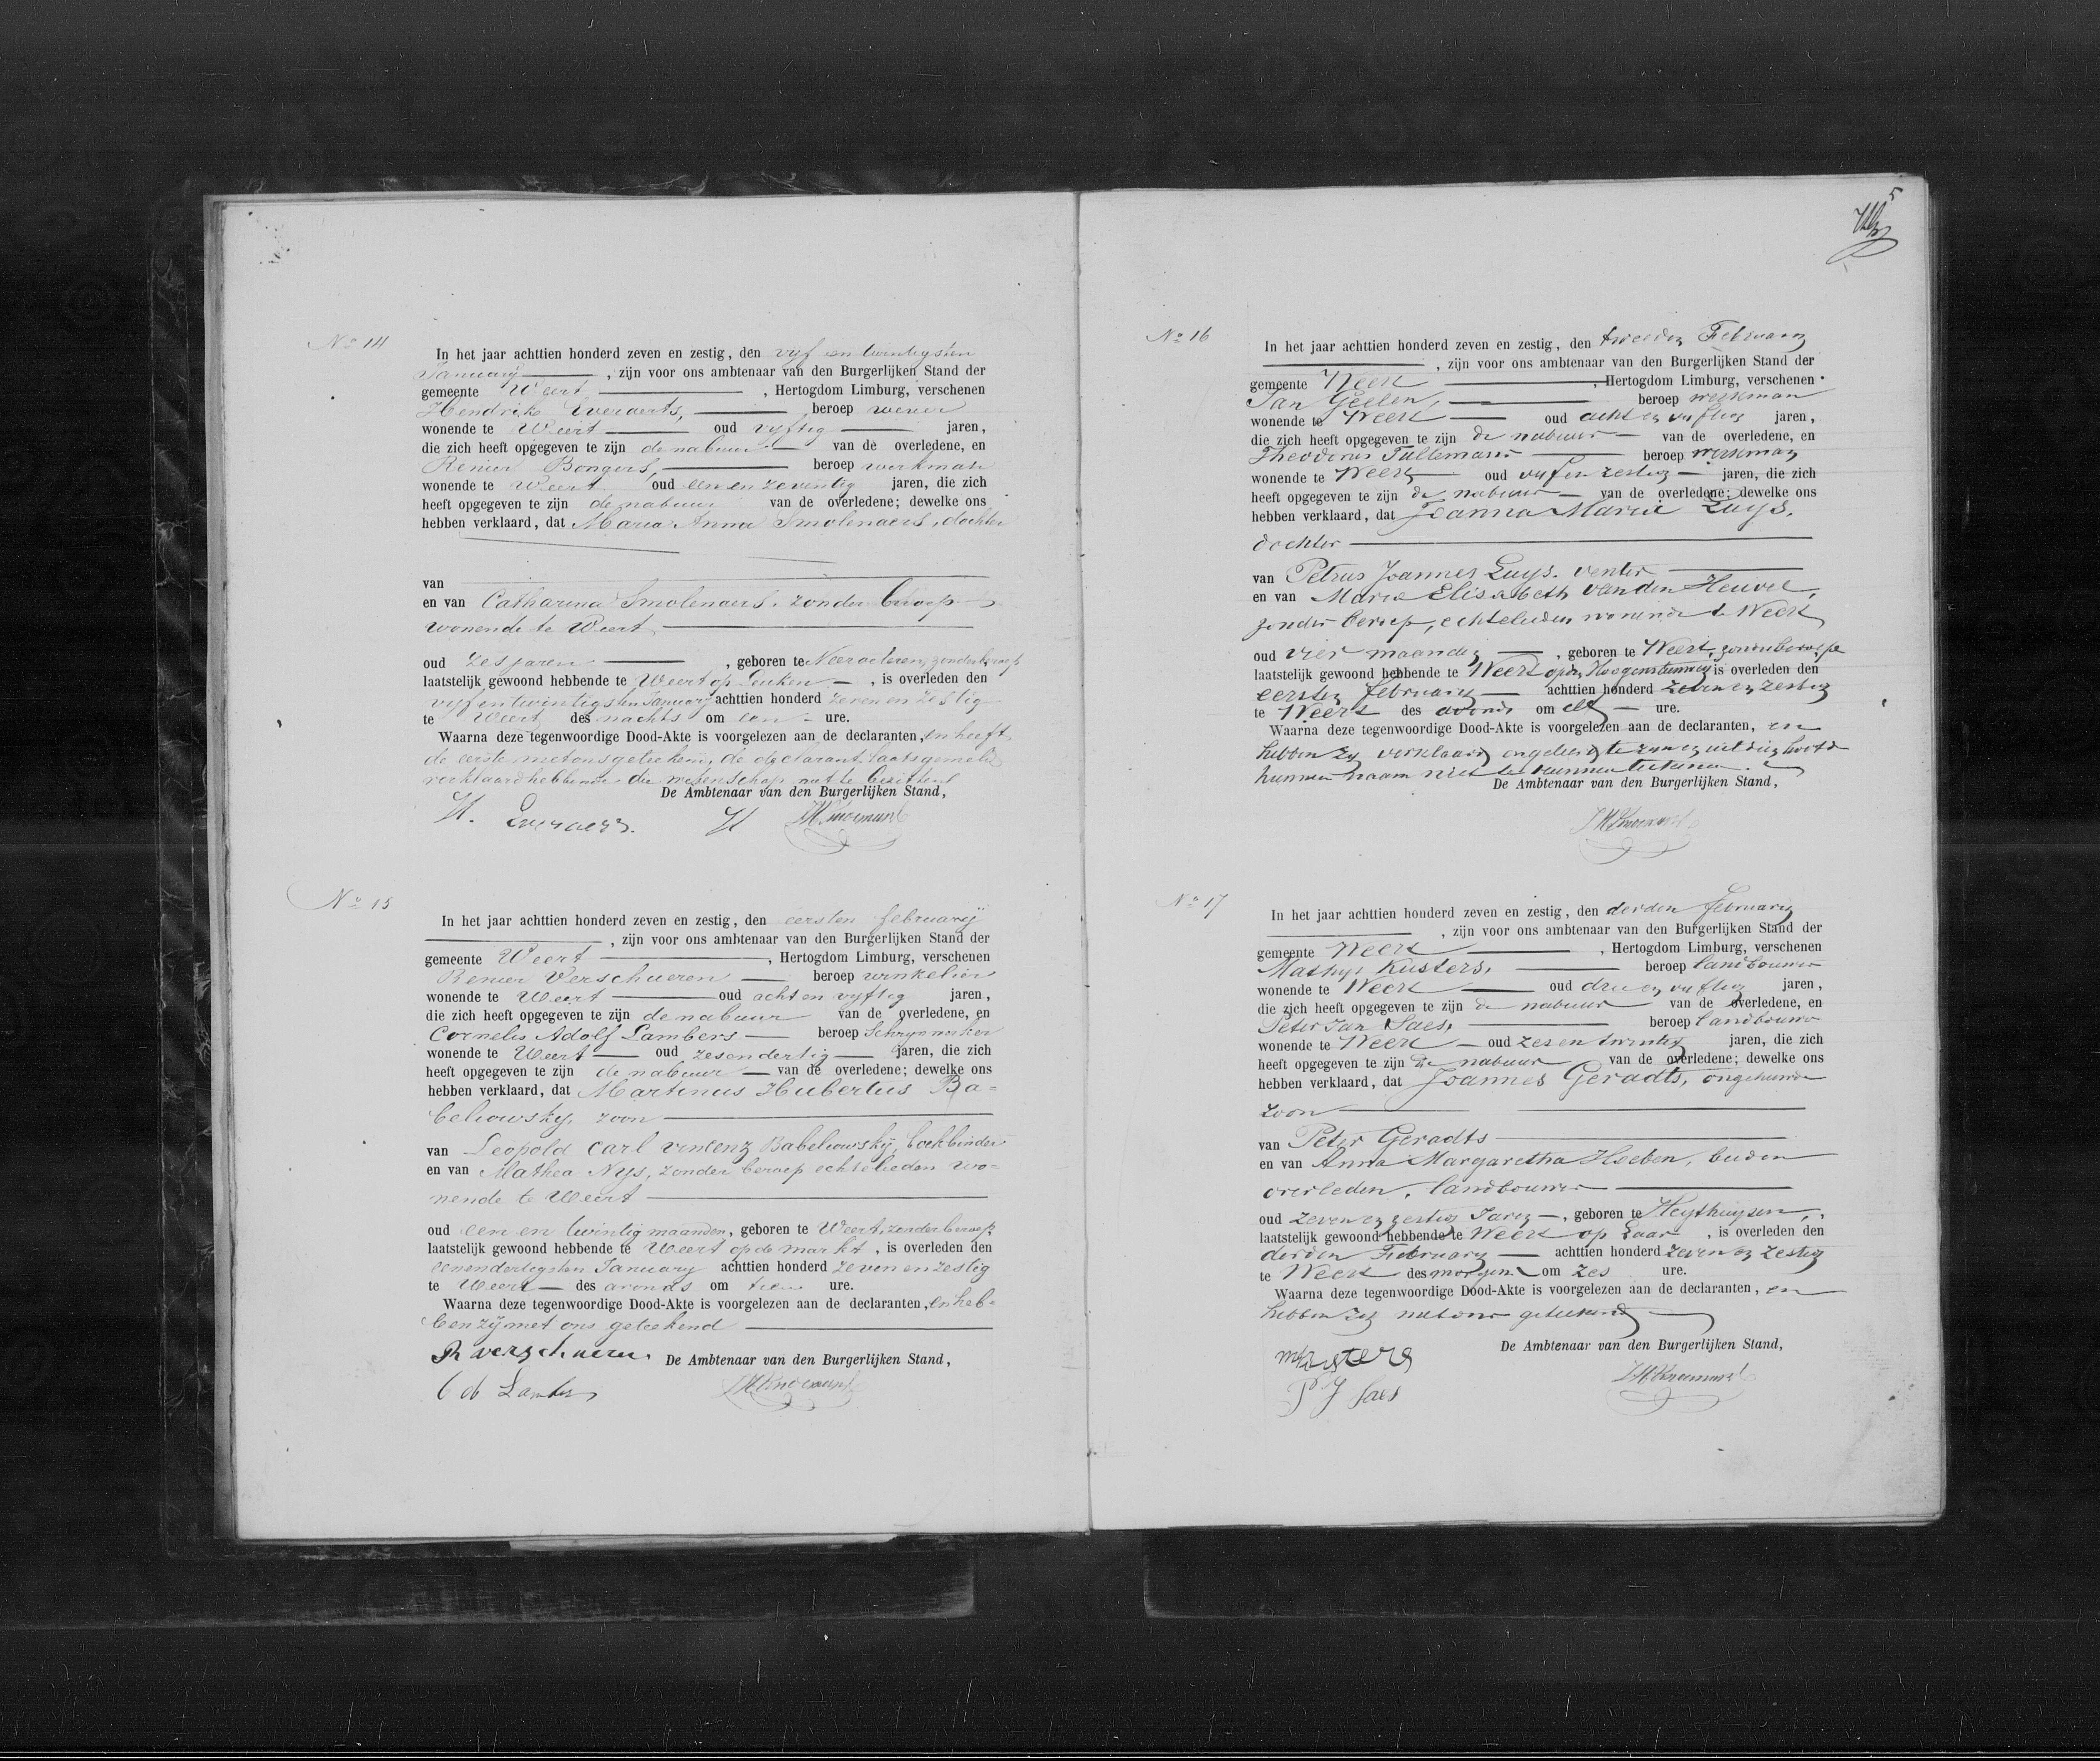 No 14
In het jaar achttien honderd zeven en zestig, den vijf en twintigsten
January, zijn voor ons ambtenaar van den Burgerlijken Stand der
gemeente Weert, Hertogdom Limburg, verschenen
Hendrik Everaerts, beroep wever
wonende te Weert oud vyftig jaren,
die zich heeft opgegeven te zijn de nabuur van de overledene, en
Renier Bongers, beroep werkman
wonende te Weert oud een en zeventig jaren, die zich
heeft opgegeven te zijn de nabuur van de overledene; dewelke ons
hebben verklaard, dat Maria Anna Smolenaers, dochter
van
en van Catharina Smolenaers, zonder beroep
wonende te Weert
oud zes jaren, geboren te Neeroeteren, zonder beroep
laatstelijk gewoond hebbende te Weert op Leuken, is overleden den
vyf en twintigsten January achttien honderd zeven en zestig
te Weert des nachts om een ure.
Waarna deze tegenwoordige Dood-Akte is voorgelezen aan de declaranten, en heeft
de eerste met ons geteekend, de declarant laatsgemeld
verklaard hebbende die wetenschap niet te bezitten
De Ambtenaar van den Burgerlijken Stand,
H. Everaers.
No 15
In het jaar achttien honderd zeven en zestig, den eersten february
, zijn voor ons ambtenaar van den Burgerlijken Stand der
gemeente Weert, Hertogdom Limburg, verschenen
Renier Verschueren beroep winkelier
wonende te Weert oud acht en vyftig jaren,
die zich heeft opgegeven te zijn de nabuur van de overledene, en
Cornelis Adolf Lambers beroep Schrynwerker
wonende te Weert oud zesendertig jaren, die zich
heeft opgegeven te zijn de nabuur van de overledene; dewelke ons
hebben verklaard, dat Martinus Hubertus Ba=
beliowsky, zoon
van Leopold Carl Vincenz Babeliowsky, boekbinder
en van Mathea Nys, zonder beroep echtelieden wo=
nende te Weert
oud een en twintig maanden, geboren te Weert, zonder beroep,
laatstelijk gewoond hebbende te Weert op de markt, is overleden den
eenendertigsten January achttien honderd zeven en zestig
te Weert des avonds om tien ure.
Waarna deze tegenwoordige Dood-Akte is voorgelezen aan de declaranten, en heb=
ben zy met ons geteekend
R verschueren De Ambtenaar van den Burgerlijken Stand,
Lambers
5
No 16
In het jaar achttien honderd zeven en zestig, den tweeden February
, zijn voor ons ambtenaar van den Burgerlijken Stand der
gemeente Weert, Hertogdom Limburg, verschenen
Jan Geelen, beroep werkman
wonende te Weert oud acht en vyftig jaren,
die zich heeft opgegeven te zijn de nabuur van de overledene, en
Theodorus Tullemans beroep werkman
wonende te Weert oud vyf en zestig jaren, die zich
heeft opgegeven te zijn de nabuur van de overledene; dewelke ons
hebben verklaard, dat Joanna Maria Luys,
dochter
van Petrus Joannes Luys, venter
en van Maria Elisabeth van den Heuvel,
zonder beroep, echtelieden wonende te Weert
oud vier maanden, geboren te Weert, zonder beroep
laatstelijk gewoond hebbende te Weert op den Hoogensteenweg is overleden den
eersten february achttien honderd zeven en zestig
te Weert des avonds om elf ure.
Waarna deze tegenwoordige Dood-Akte is voorgelezen aan de declaranten, en
hebben zy verklaard ongeleerd te zyn en uit dien hoofde
hunnen naam niet te kunnen teekenen.
De Ambtenaar van den Burgerlijken Stand,
No 17
In het jaar achttien honderd zeven en zestig, den derden February
, zijn voor ons ambtenaar van den Burgerlijken Stand der
gemeente Weert, Hertogdom Limburg, verschenen
Mathys Kusters, beroep landbouwer
wonende te Weert oud drie en vyftig jaren,
die zich heeft opgegeven te zijn de nabuur van de overledene, en
Peter Jan Saes, beroep landbouwer
wonende te Weert oud zes en twintig jaren, die zich
heeft opgegeven te zijn de nabuur van de overledene; dewelke ons
hebben verklaard, dat Joannes Geradts, ongehuwde
zoon
van Peter Geradts
en van Anna Margaretha Hoeben, beiden
overleden, landbouwer
oud zeven en zestig Jaren, geboren te Heythuysen,
laatstelijk gewoond hebbende te Weert op Laar, is overleden den
derden February achttien honderd zeven en zestig
te Weert des morgens om zes ure.
Waarna deze tegenwoordige Dood-Akte is voorgelezen aan de declaranten, en
hebben zy met ons geteekend
De Ambtenaar van den Burgerlijken Stand,
M Kusters
P J Saes